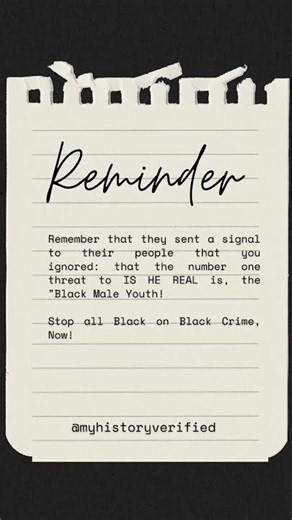 Reminder
Remember that they sent a signal
to their people that you
ignored: that the number one
threat to IS HE REAL is, the
"Black Male Youth!
Stop all Black on Black Crime,
Now!
@myhistoryverified